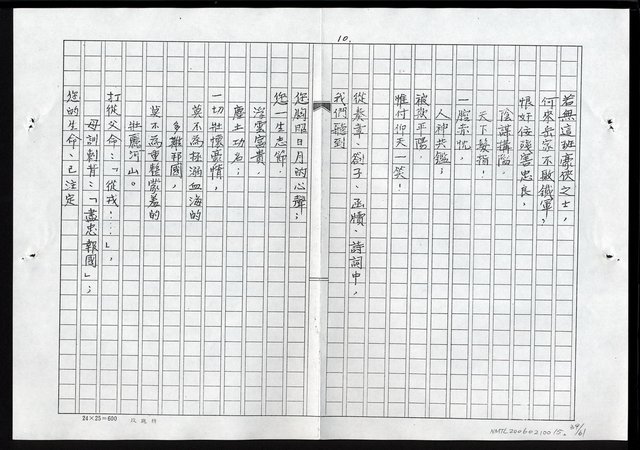 10.
若無這班豪俠之士，
何來岳家不敗鐵軍？
恨奸佞殘害忠良，
陰謀搆陷，
天下發指！
一腔赤忱，
人神共鑑；
被放平陽，
惟付仰天一笑！
從奏章、劄子、函牘、詩詞中，
我們聽到
您胸照日月的心聲；
您一生忠節，
浮雲富貴，
塵土功名；
一切壯懷豪情，
莫不為拯溺血海的
多難邦國，
莫不為重整蒙羞的
壯麗河山。
打從父命：「從戎！……」，
母訓刺背：「盡忠報國」；
您的生命，已注定
24×25=600
NMTL20060210015.
34/61